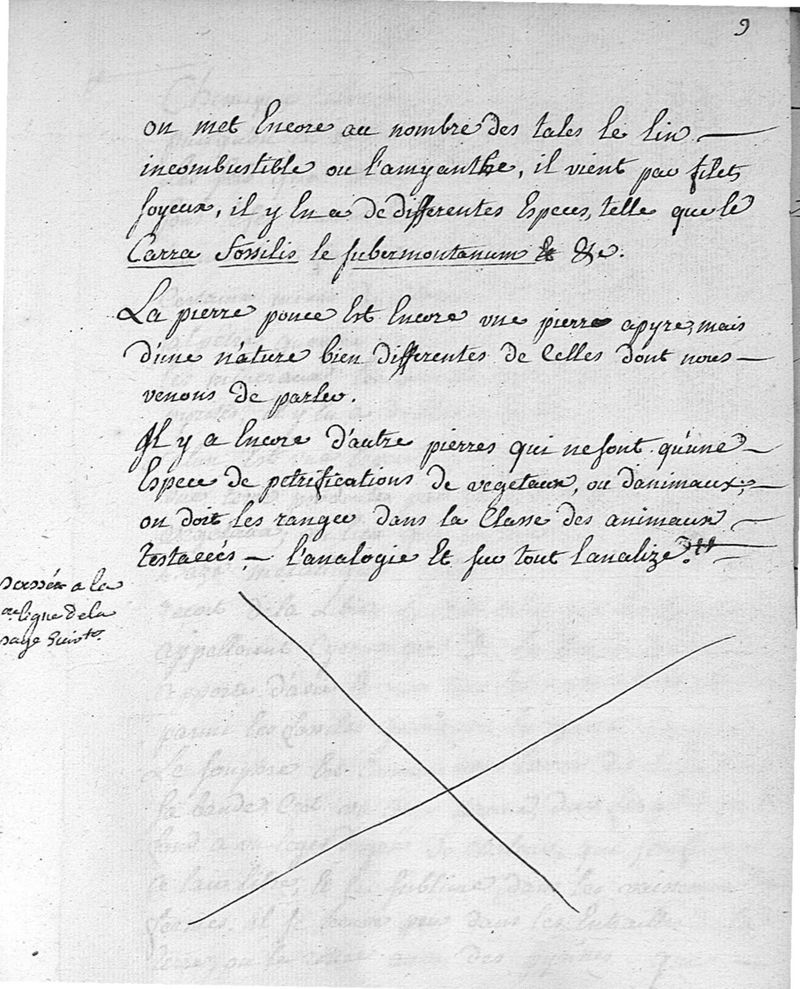 9
on met Encore au nombre des talcs le lin
incombustible ou l'amyanthe, il vient par filets
soyeux, il y En a de differentes Especes, telle que le
Carra fossilis le subermontanum & &c.
La pierre ponce Est Encore une pierre apyre, mais
d'une nature bien differentes de Celles dont nous
venons de parler.
Il y a Encore d'autre pierres qui ne sont qu'une
Espece de petrifications de vegetaux, ou d'animaux;
on doit les ranger dans la Classe des animaux
testacees, l'analogie Et sur tout l'analize.
passéz a la
ligne de la
page Suivte.